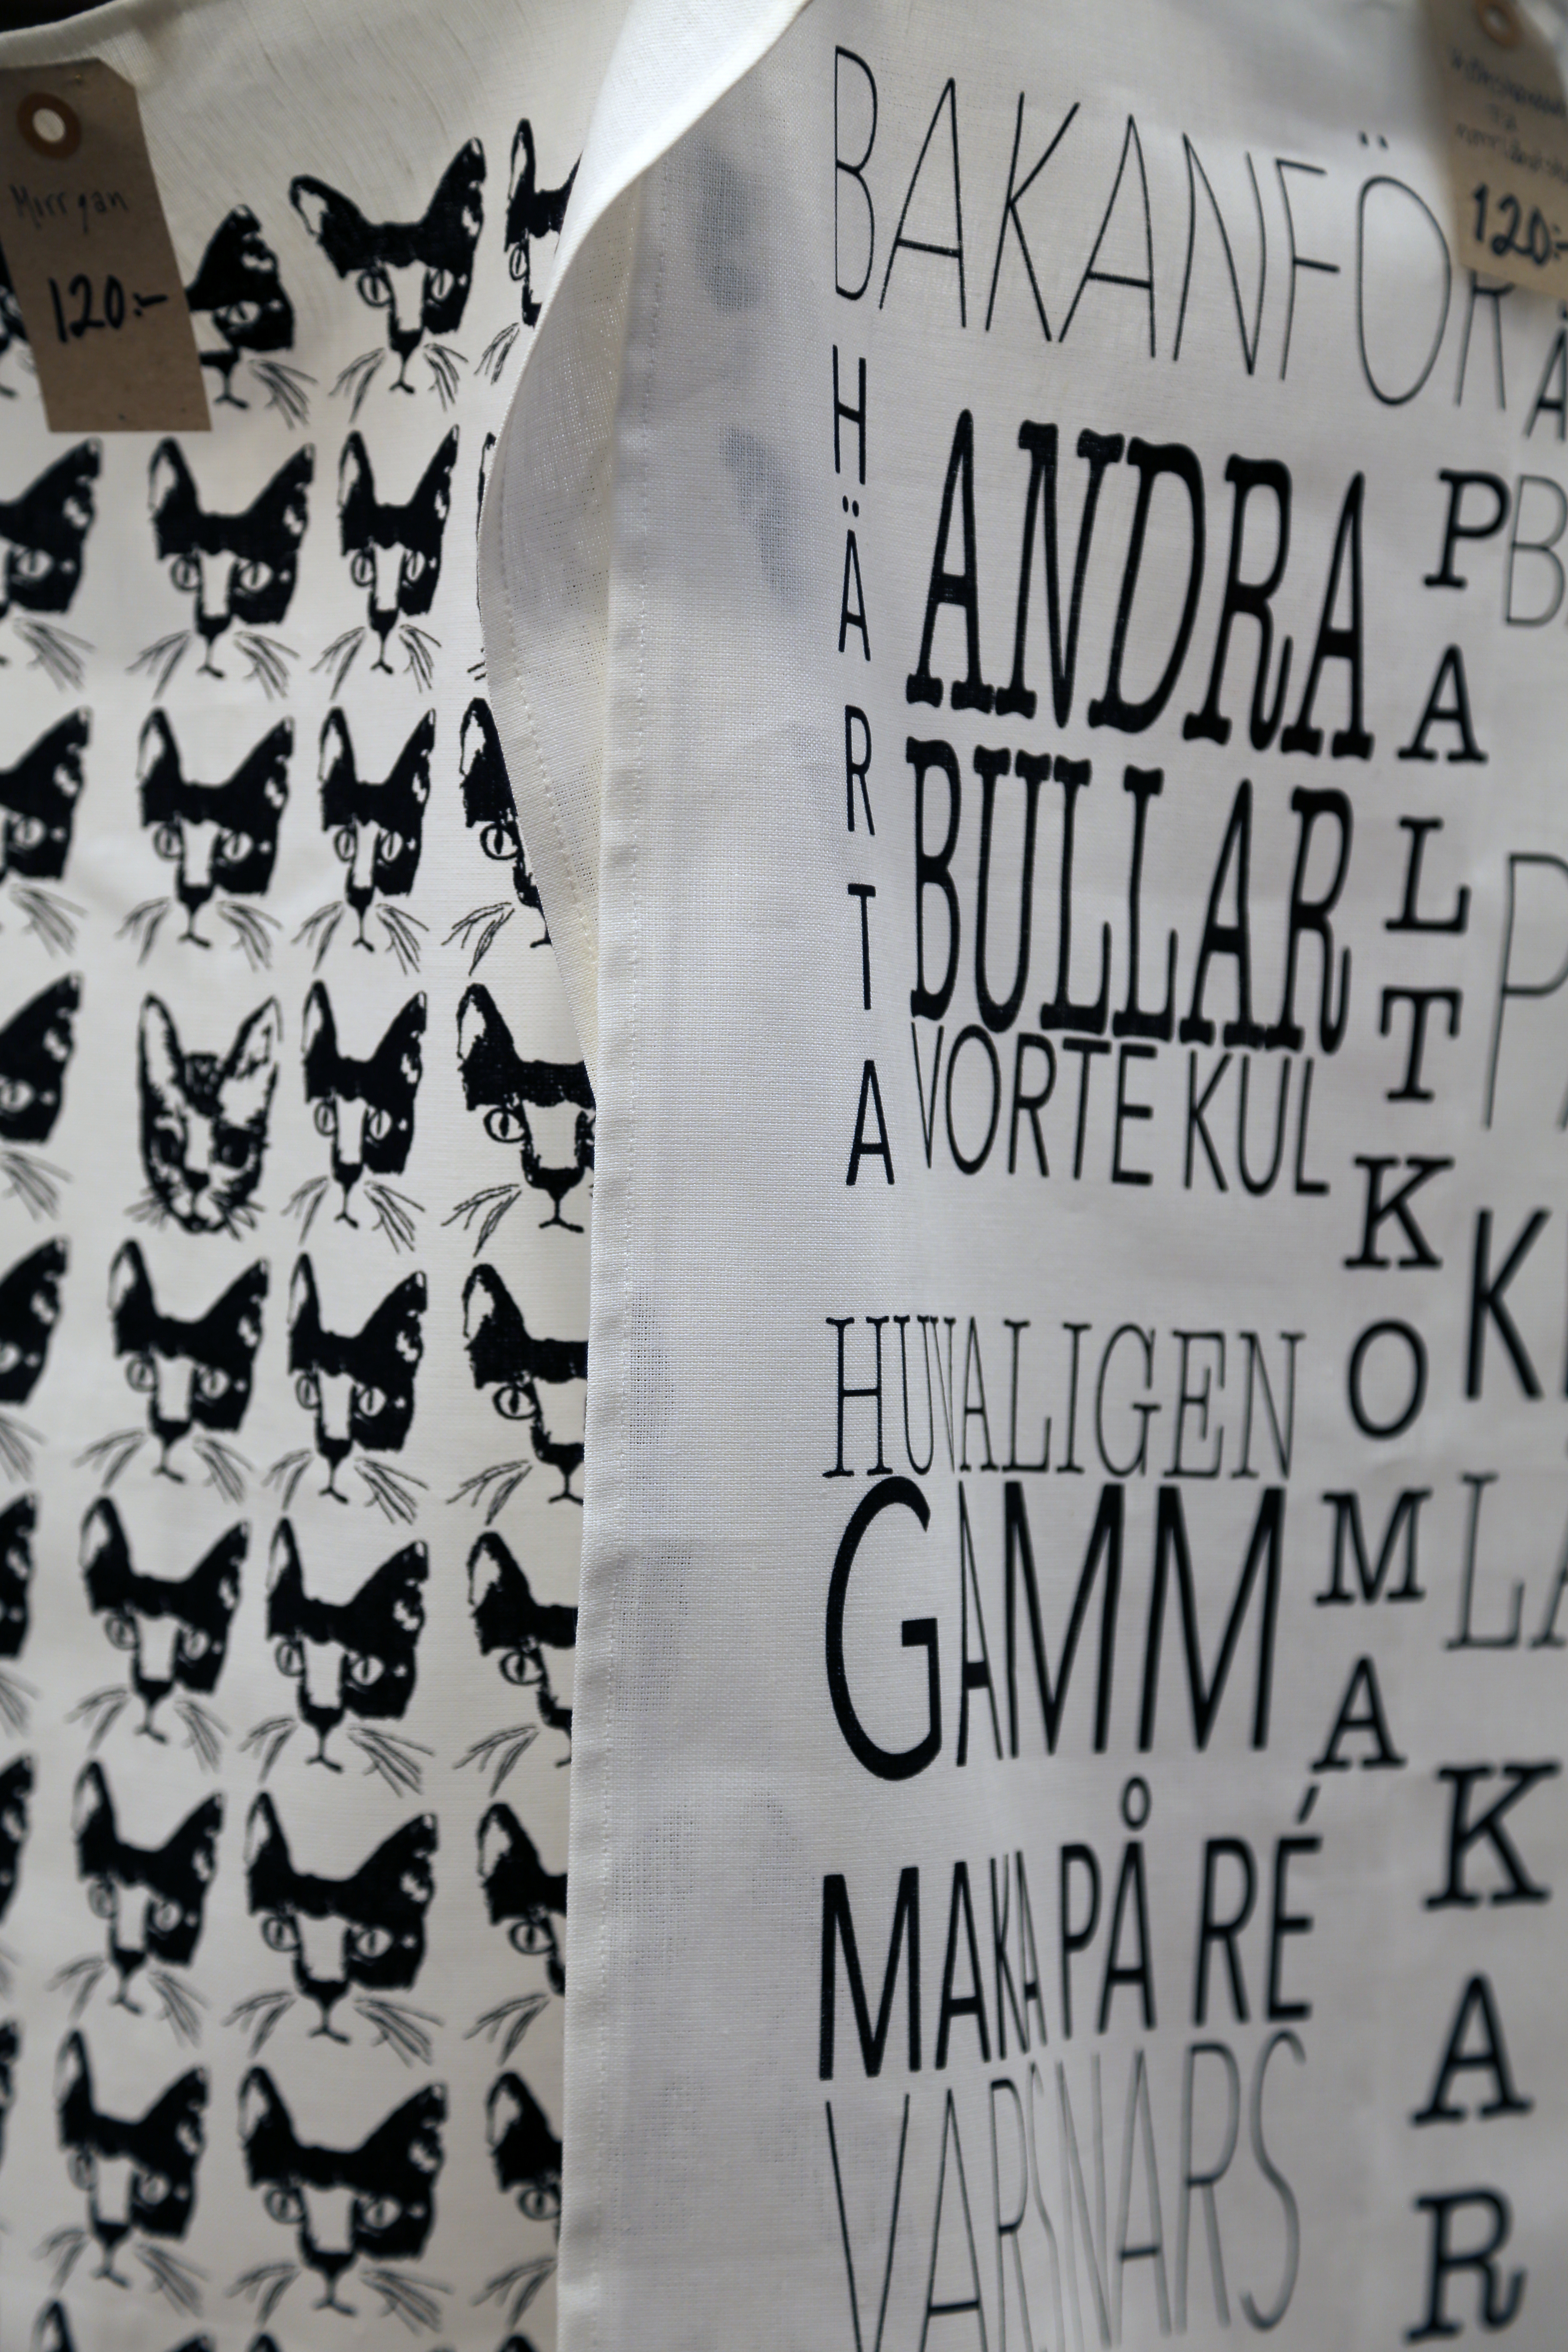 Mirrgan
120:-
120:-
BAKANFÖR
HÄRTA
ANDRA
BULLAR
VORTE KUL
PALTKOMA
HUVALIGEN
GAMM
MAKA PÅ RÉ
VARSNARS
KAR